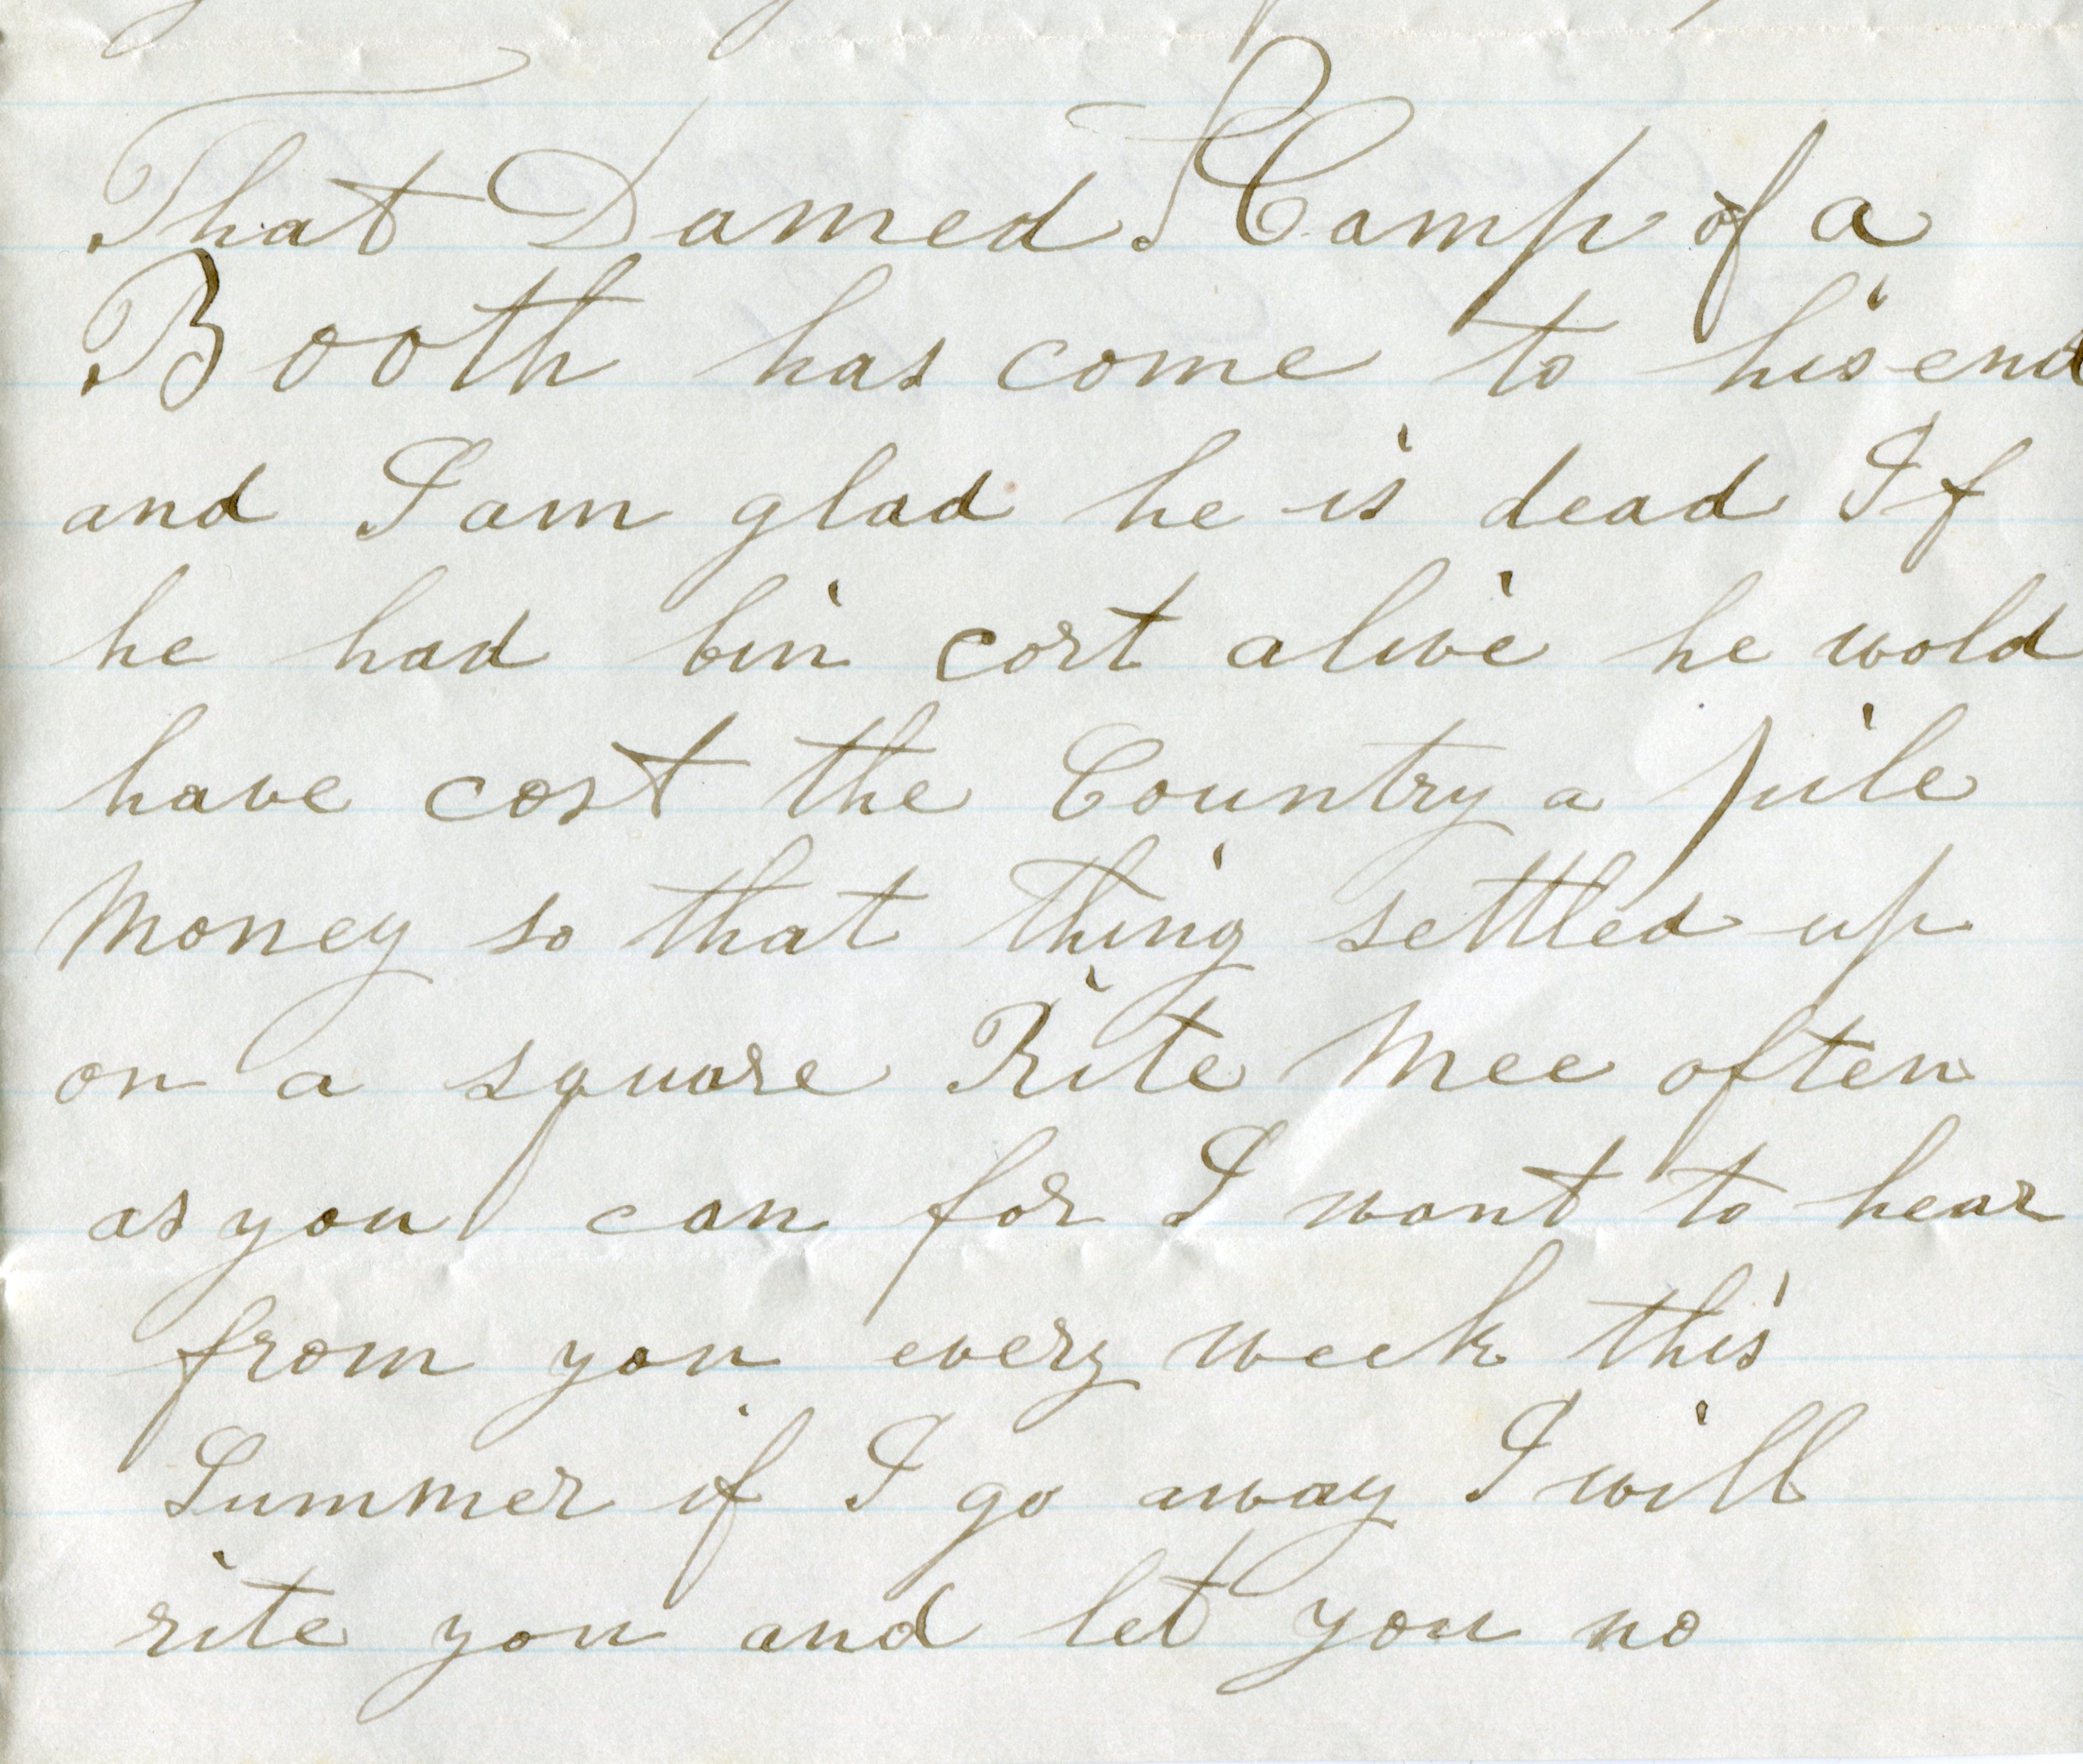 That Damed SCamp of a
Booth has come to his end
and I am glad he is dead If
he had bin cort alive he wold
have cost the Country a pile
Money so that thing settled up
on a square Rite Mee often
as you can for I want to hear
from you every week this
Summer if I go away I will
rite you and let you no